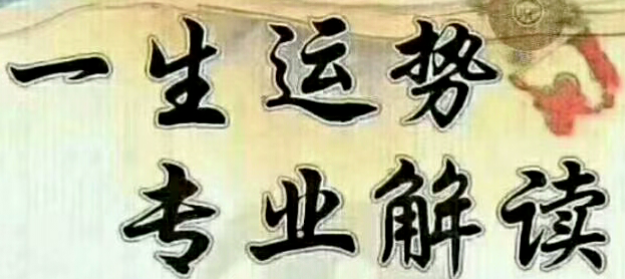 一生运势
专业解读